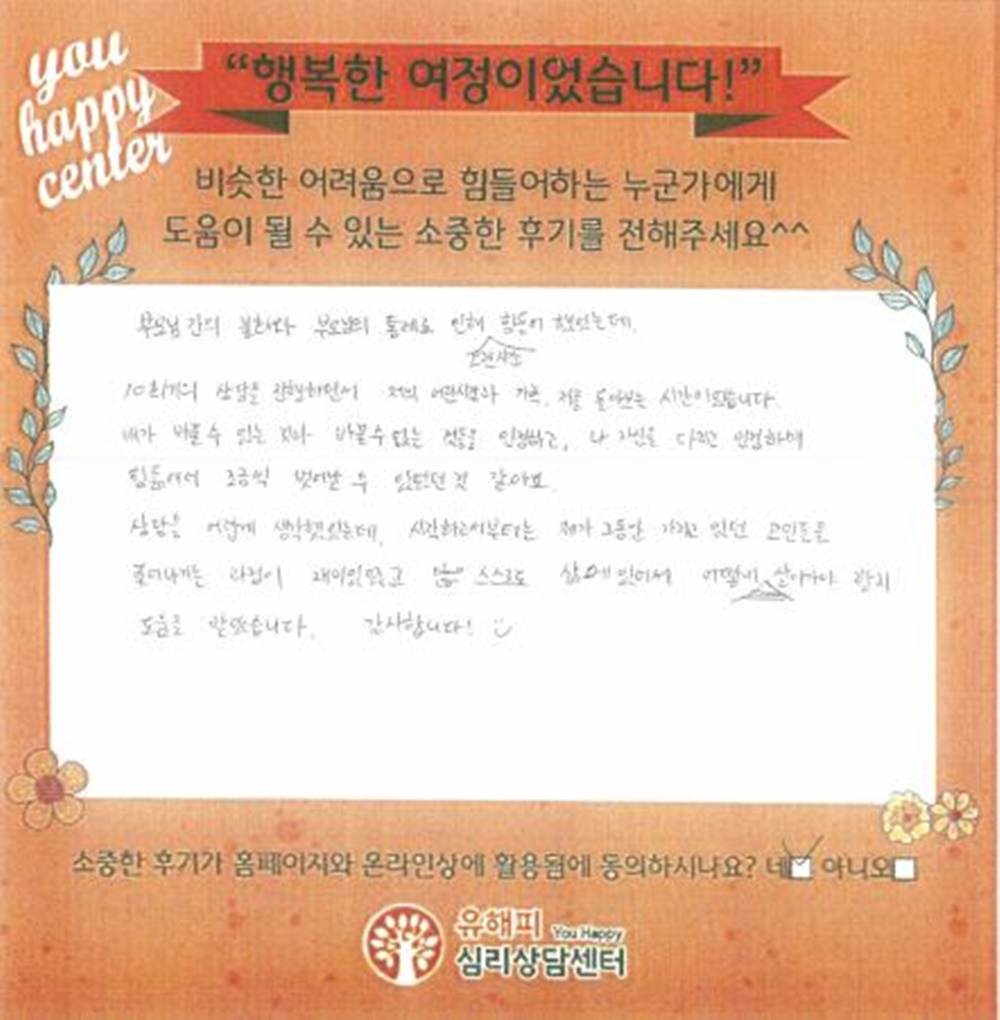 you
happy
center
“행복한 여정이었습니다!”
비슷한 어려움으로 힘들어하는 누군가에게
도움이 될 수 있는 소중한 후기를 전해주세요^^
부모님 간의 불화와 부모님의 통제로 인해 힘들어 했었는데,
10회기의 상담을 진행하면서 저의 어린시절과 가족, 저를 돌아보는 시간이었습니다.
내가 바꿀 수 있는 것과 바꿀 수 없는 것들을 인정하고, 나 자신을 다시금 인정하며
힘듦에서 조금씩 벗어날 수 있었던 것 같아요.
상담을 어렵게 생각했었는데, 시작하고서부터는 제가 그동안 가지고 있던 고민들을
풀어나가는 과정이 재미있었고 스스로 삶에 있어서 어떻게 살아가야 할지
도움을 받았습니다. 감사합니다!
소중한 후기가 홈페이지와 온라인상에 활용됨에 동의하시나요? 네 아니오
유해피 You Happy
심리상담센터